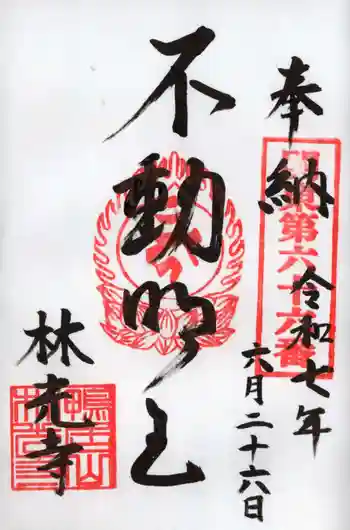 奉納
令和七年
六月二十六日
第六十六番
不動明王
林光寺